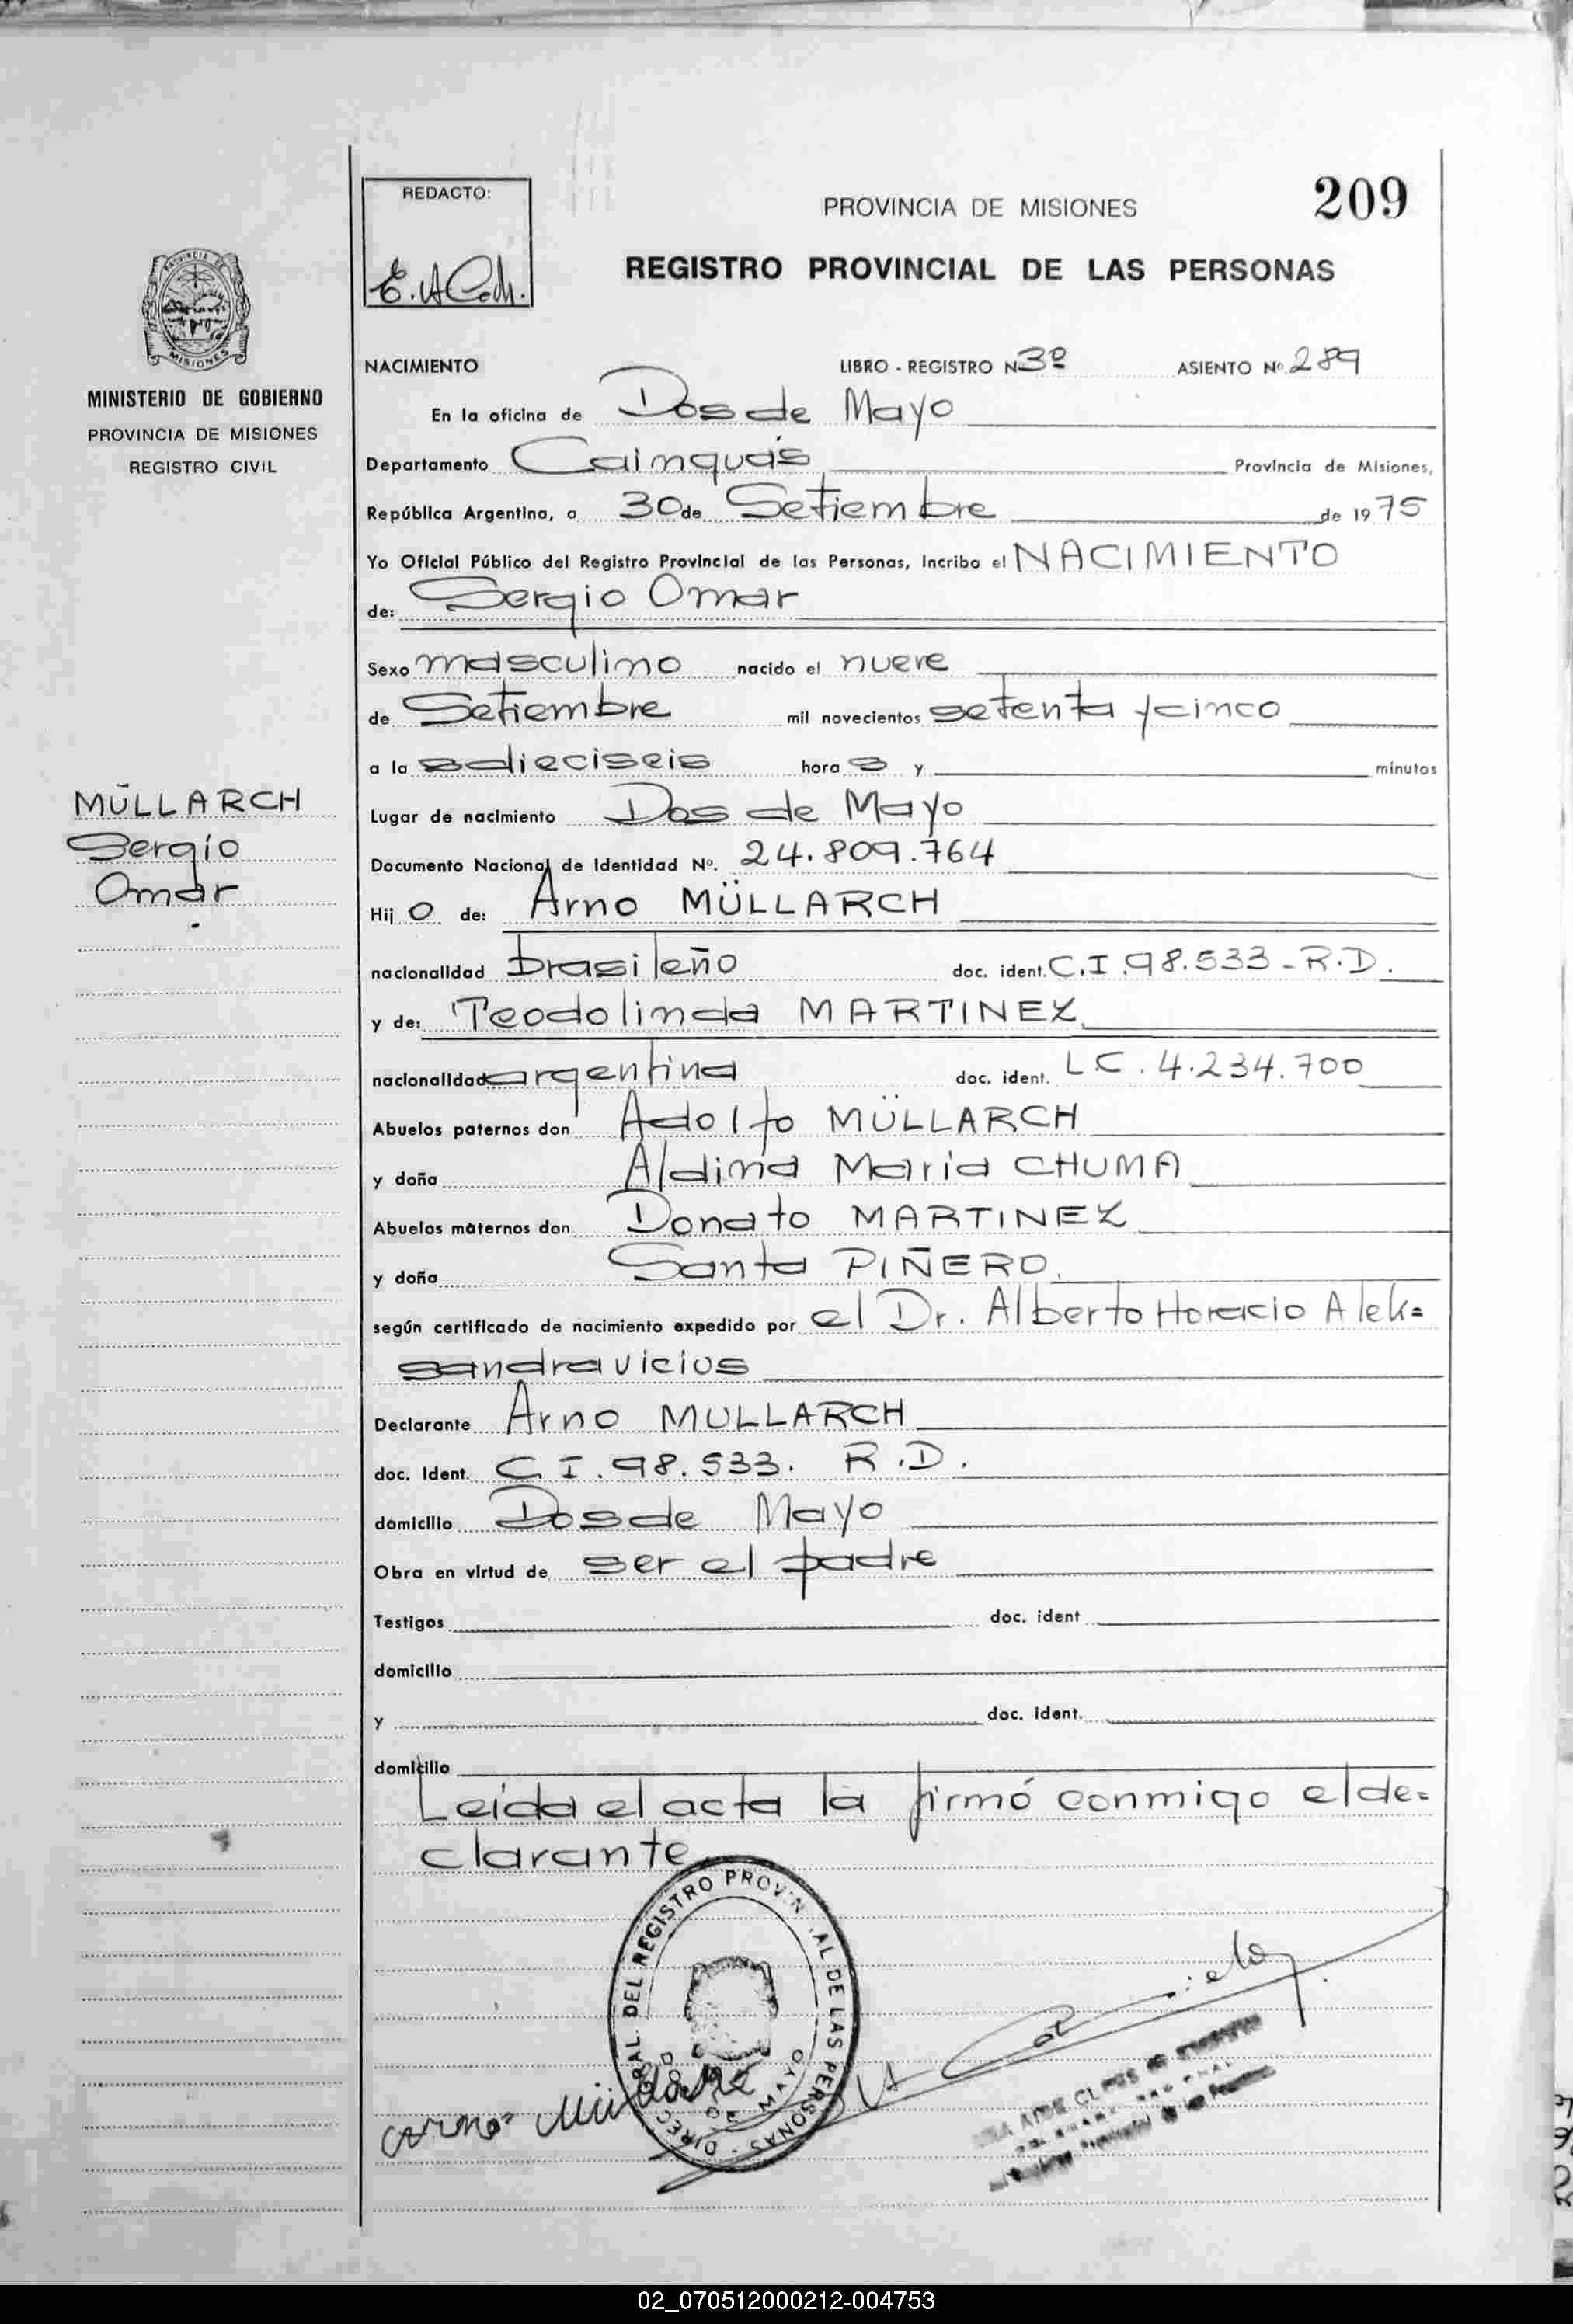 REDACTO:
E. A. Cch.
PROVINCIA DE MISIONES
209
REGISTRO PROVINCIAL DE LAS PERSONAS
PROVINCIA DE
MISIONES
MINISTERIO DE GOBIERNO
PROVINCIA DE MISIONES
REGISTRO CIVIL
MÜLLARCH
Sergio
Omar
NACIMIENTO LIBRO - REGISTRO N 3º ASIENTO Nº 289
En la oficina de Dos de Mayo
Departamento Cainguás Provincia de Misiones,
República Argentina, a 30 de Setiembre de 1975
Yo Oficial Público del Registro Provincial de las Personas, Incribo el NACIMIENTO
de: Sergio Omar
Sexo masculino nacido el nueve
de Setiembre mil novecientos setenta y cinco
a la s dieciseis hora s y minutos
Lugar de nacimiento Dos de Mayo
Documento Nacional de Identidad Nº. 24.809.764
Hij o de: Arno MÜLLARCH
nacionalidad brasileño doc. ident. C.I. 98.533 - R.D.
y de: Teodolinda MARTINEZ
nacionalidad argentina doc. ident. L C. 4.234.700
Abuelos paternos don Adolfo MÜLLARCH
y doña Aldina Maria CHUMA
Abuelos maternos don Donato MARTINEZ
y doña Santa PIÑERO.
según certificado de nacimiento expedido por el Dr. Alberto Horacio Alek=
sandravicius
Declarante Arno MULLARCH
doc. Ident. C. I. 98.533. R.D.
domicilio Dos de Mayo
Obra en virtud de ser el padre
Testigos doc. ident
domicilio
y doc. ident.
domicilio
Leida el acta la firmó conmigo el de=
clarante
DIREC GRAL. DEL REGISTRO PROVIN AL DE LAS PERSONAS
DOS DE MAYO
02_070512000212-004753